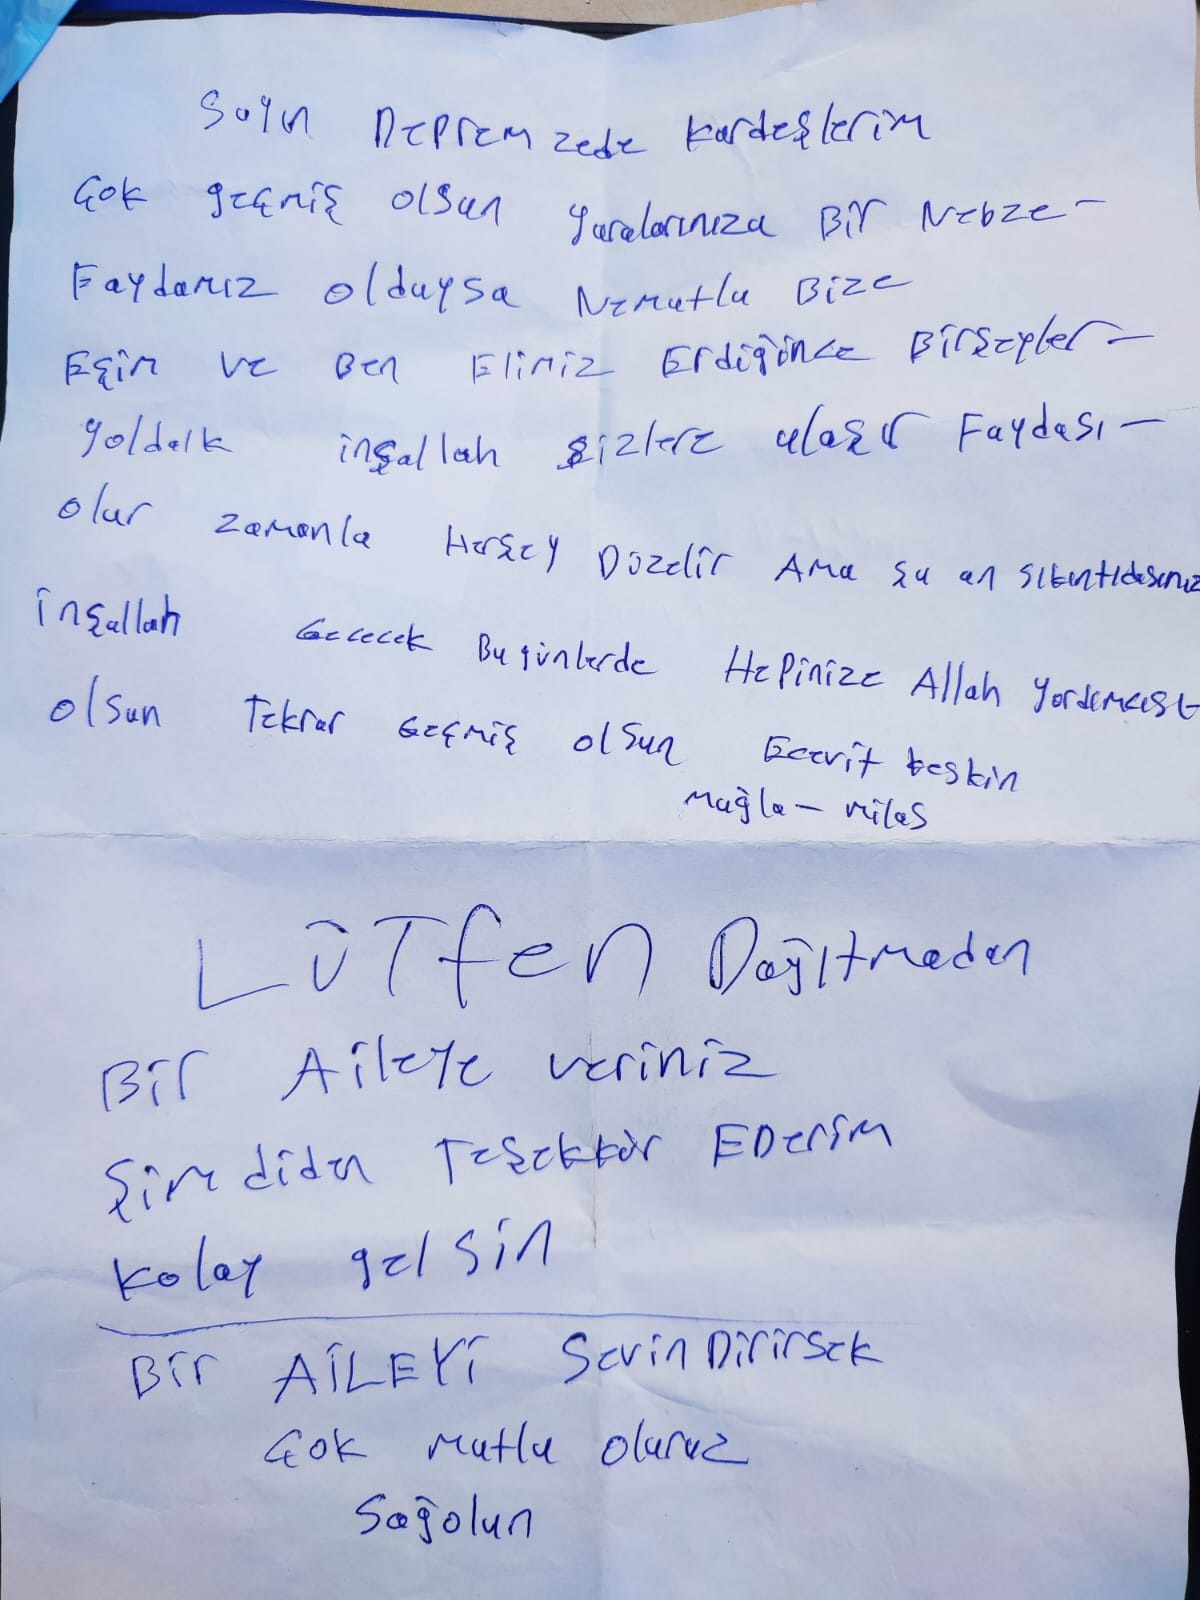 Sayın Depremzede Kardeşlerim
Çok geçmiş olsun yaralarınıza Bir Nebze -
Faydamız olduysa Nemutlu Bize
Eşim ve Ben Elimiz Erdiğince Birşeyler -
yoldalk inşallah sizlere ulaşır Faydası -
olur zamanla Herşey Düzelir Ama şu an sıkıntıdasınız
inşallah Gececek Bugünlerde Hepinize Allah yardımcısı
olsun Tekrar Geçmiş olsun Ecevit keskin
muğla - milas
LÜTfen Dağıtmadan
Bir Aileye veriniz
Şimdiden Teşekkür EDerim
kolay gelsin
Bir AİLEYİ SevinDirirsek
Çok mutlu oluruz
Sağolun